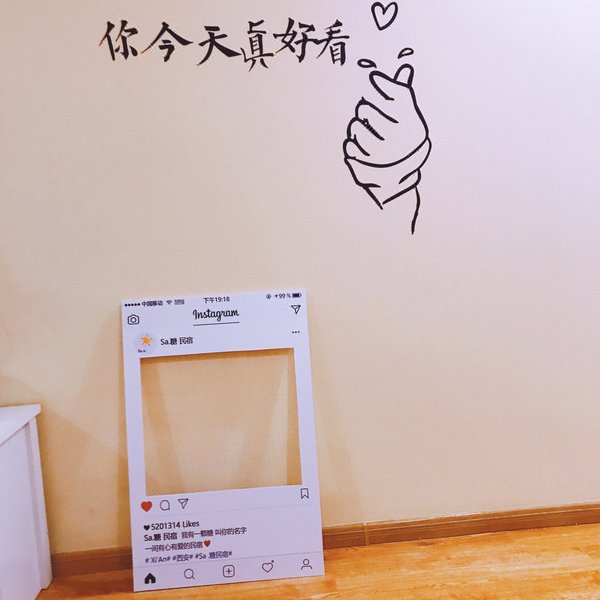 你今天真好看
中国移动 下午19:18 99%
Instagram
Sa.糖 民宿
5201314 Likes
Sa.糖 民宿 我有一颗糖 叫你的名字
一间有心有爱的民宿
# Xi'An# #西安# #Sa .糖民宿#